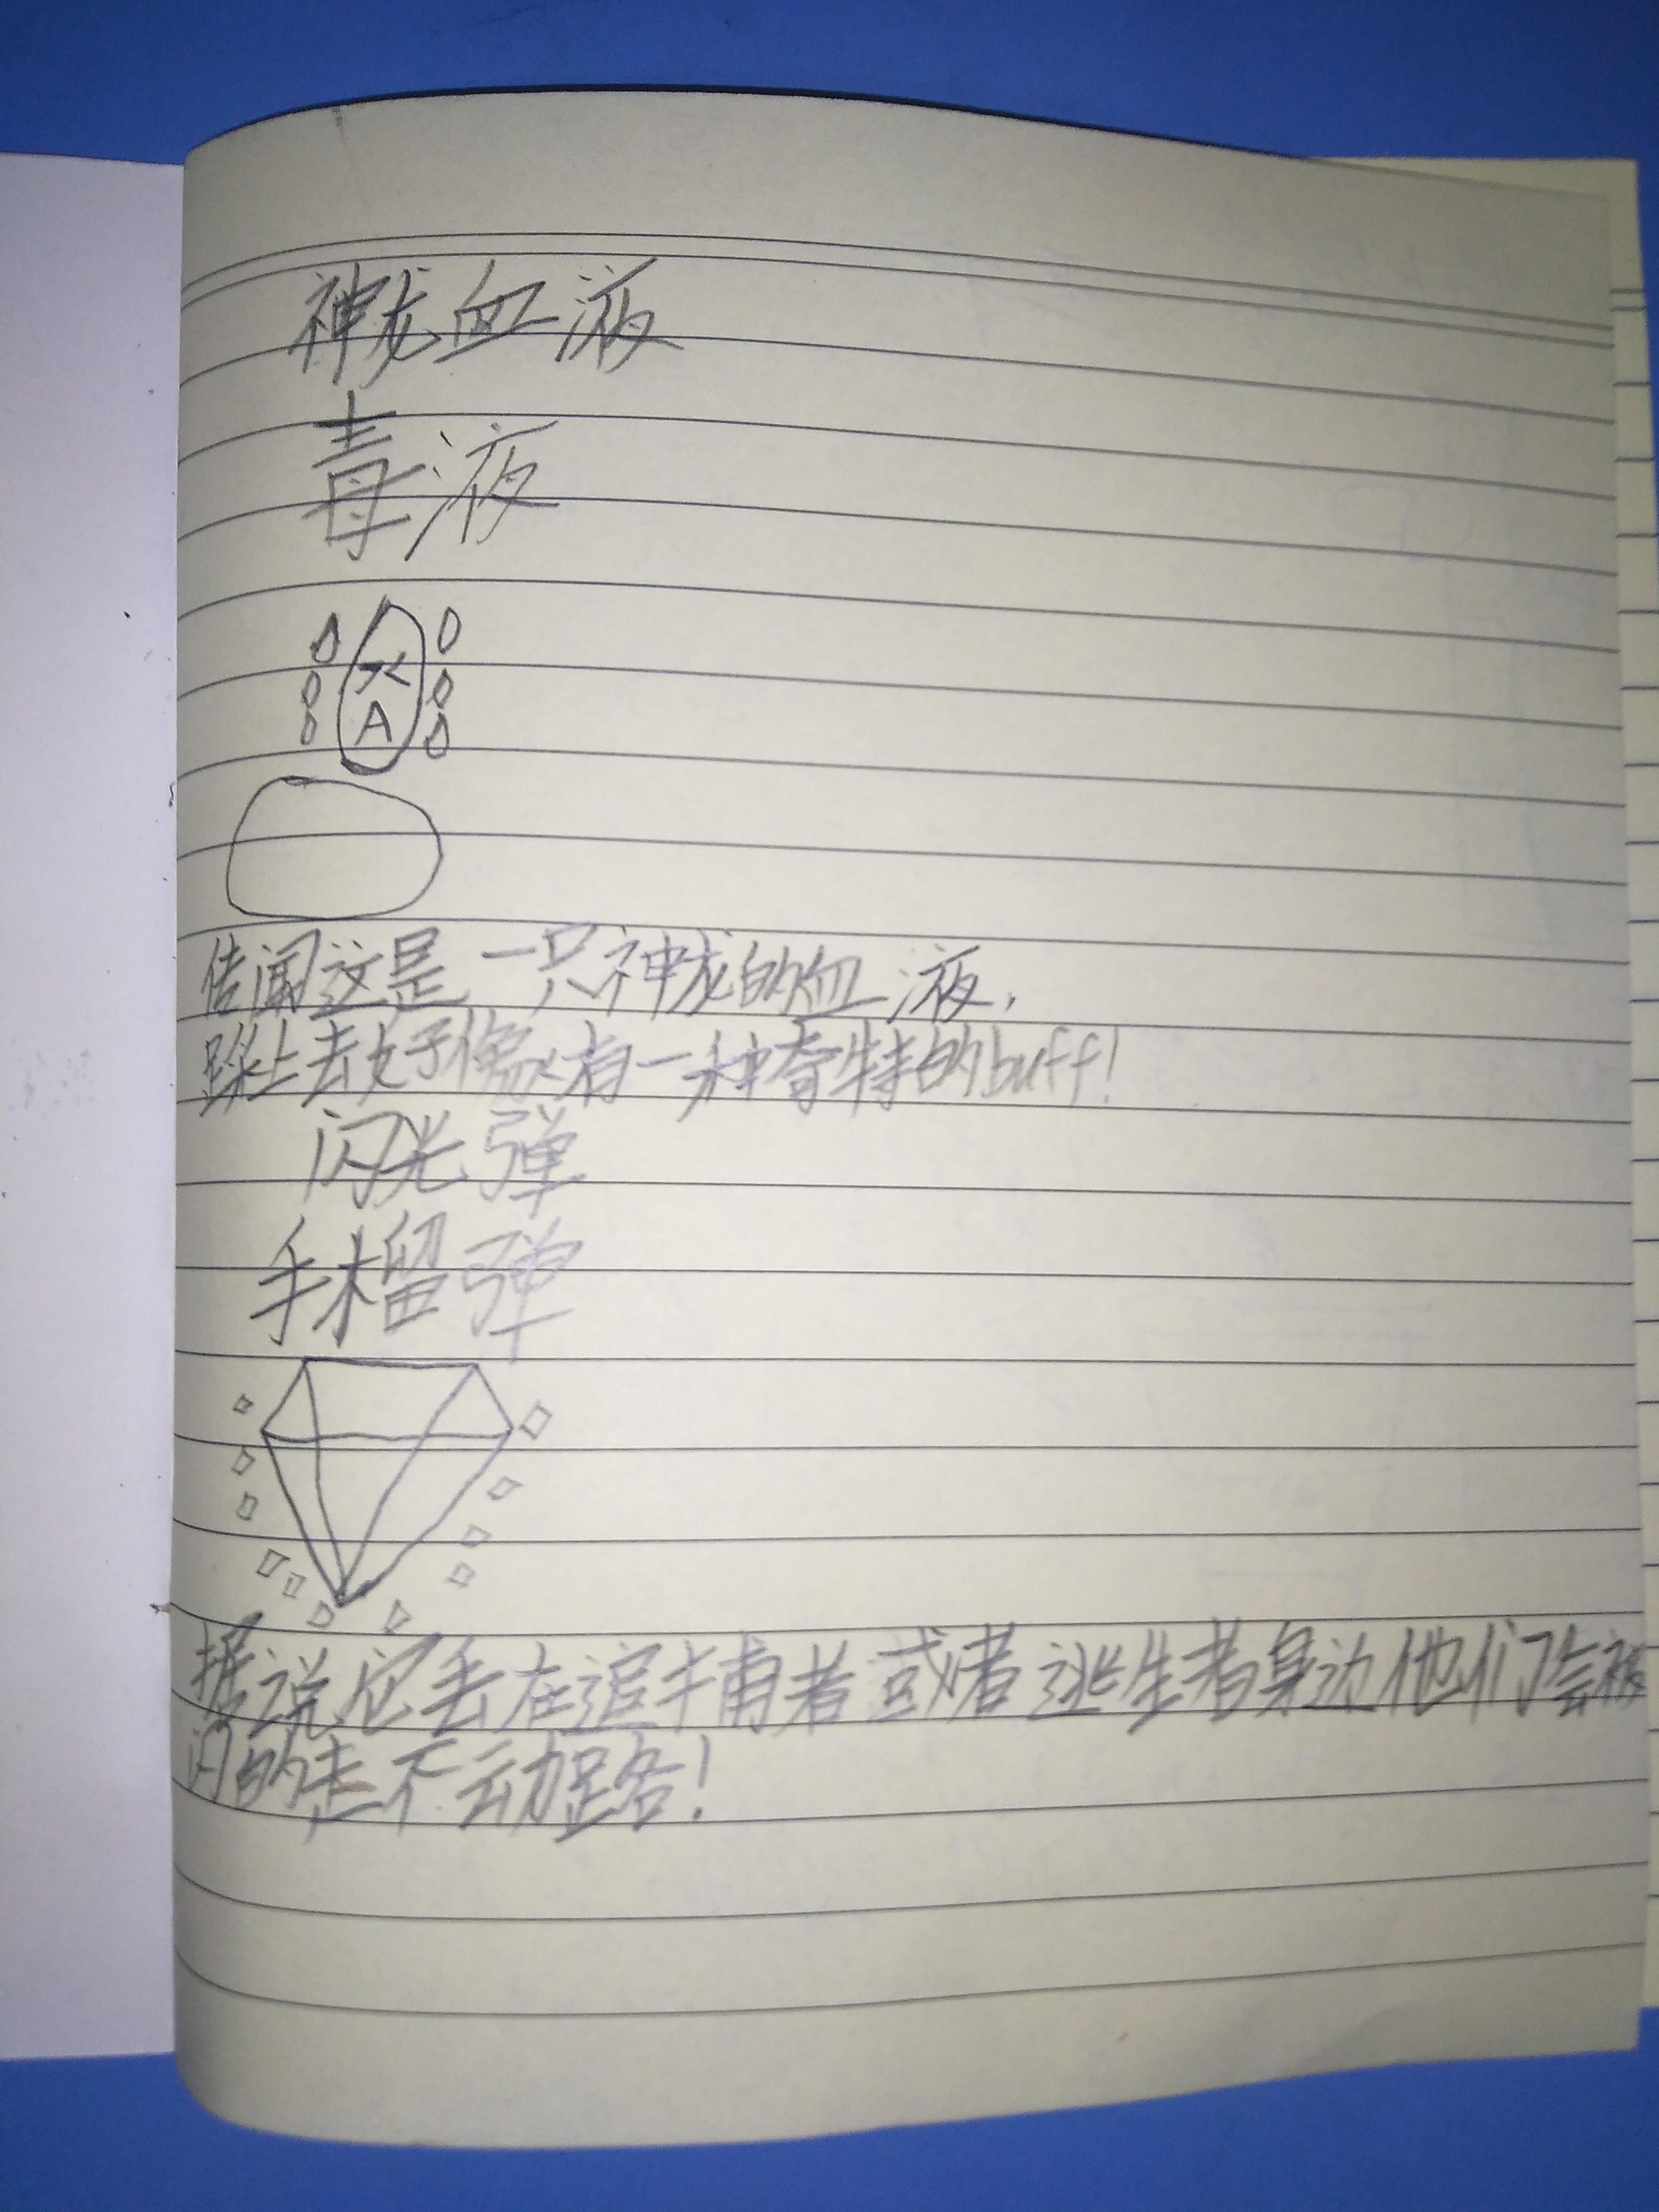 神龙血液
毒液
A
传闻这是一只神龙的血液,
踩上去好像有一种奇特的buff!
闪光弹
手榴弹
据说它丢在追捕者或者逃生者身边他们会被
闪的走不动路!